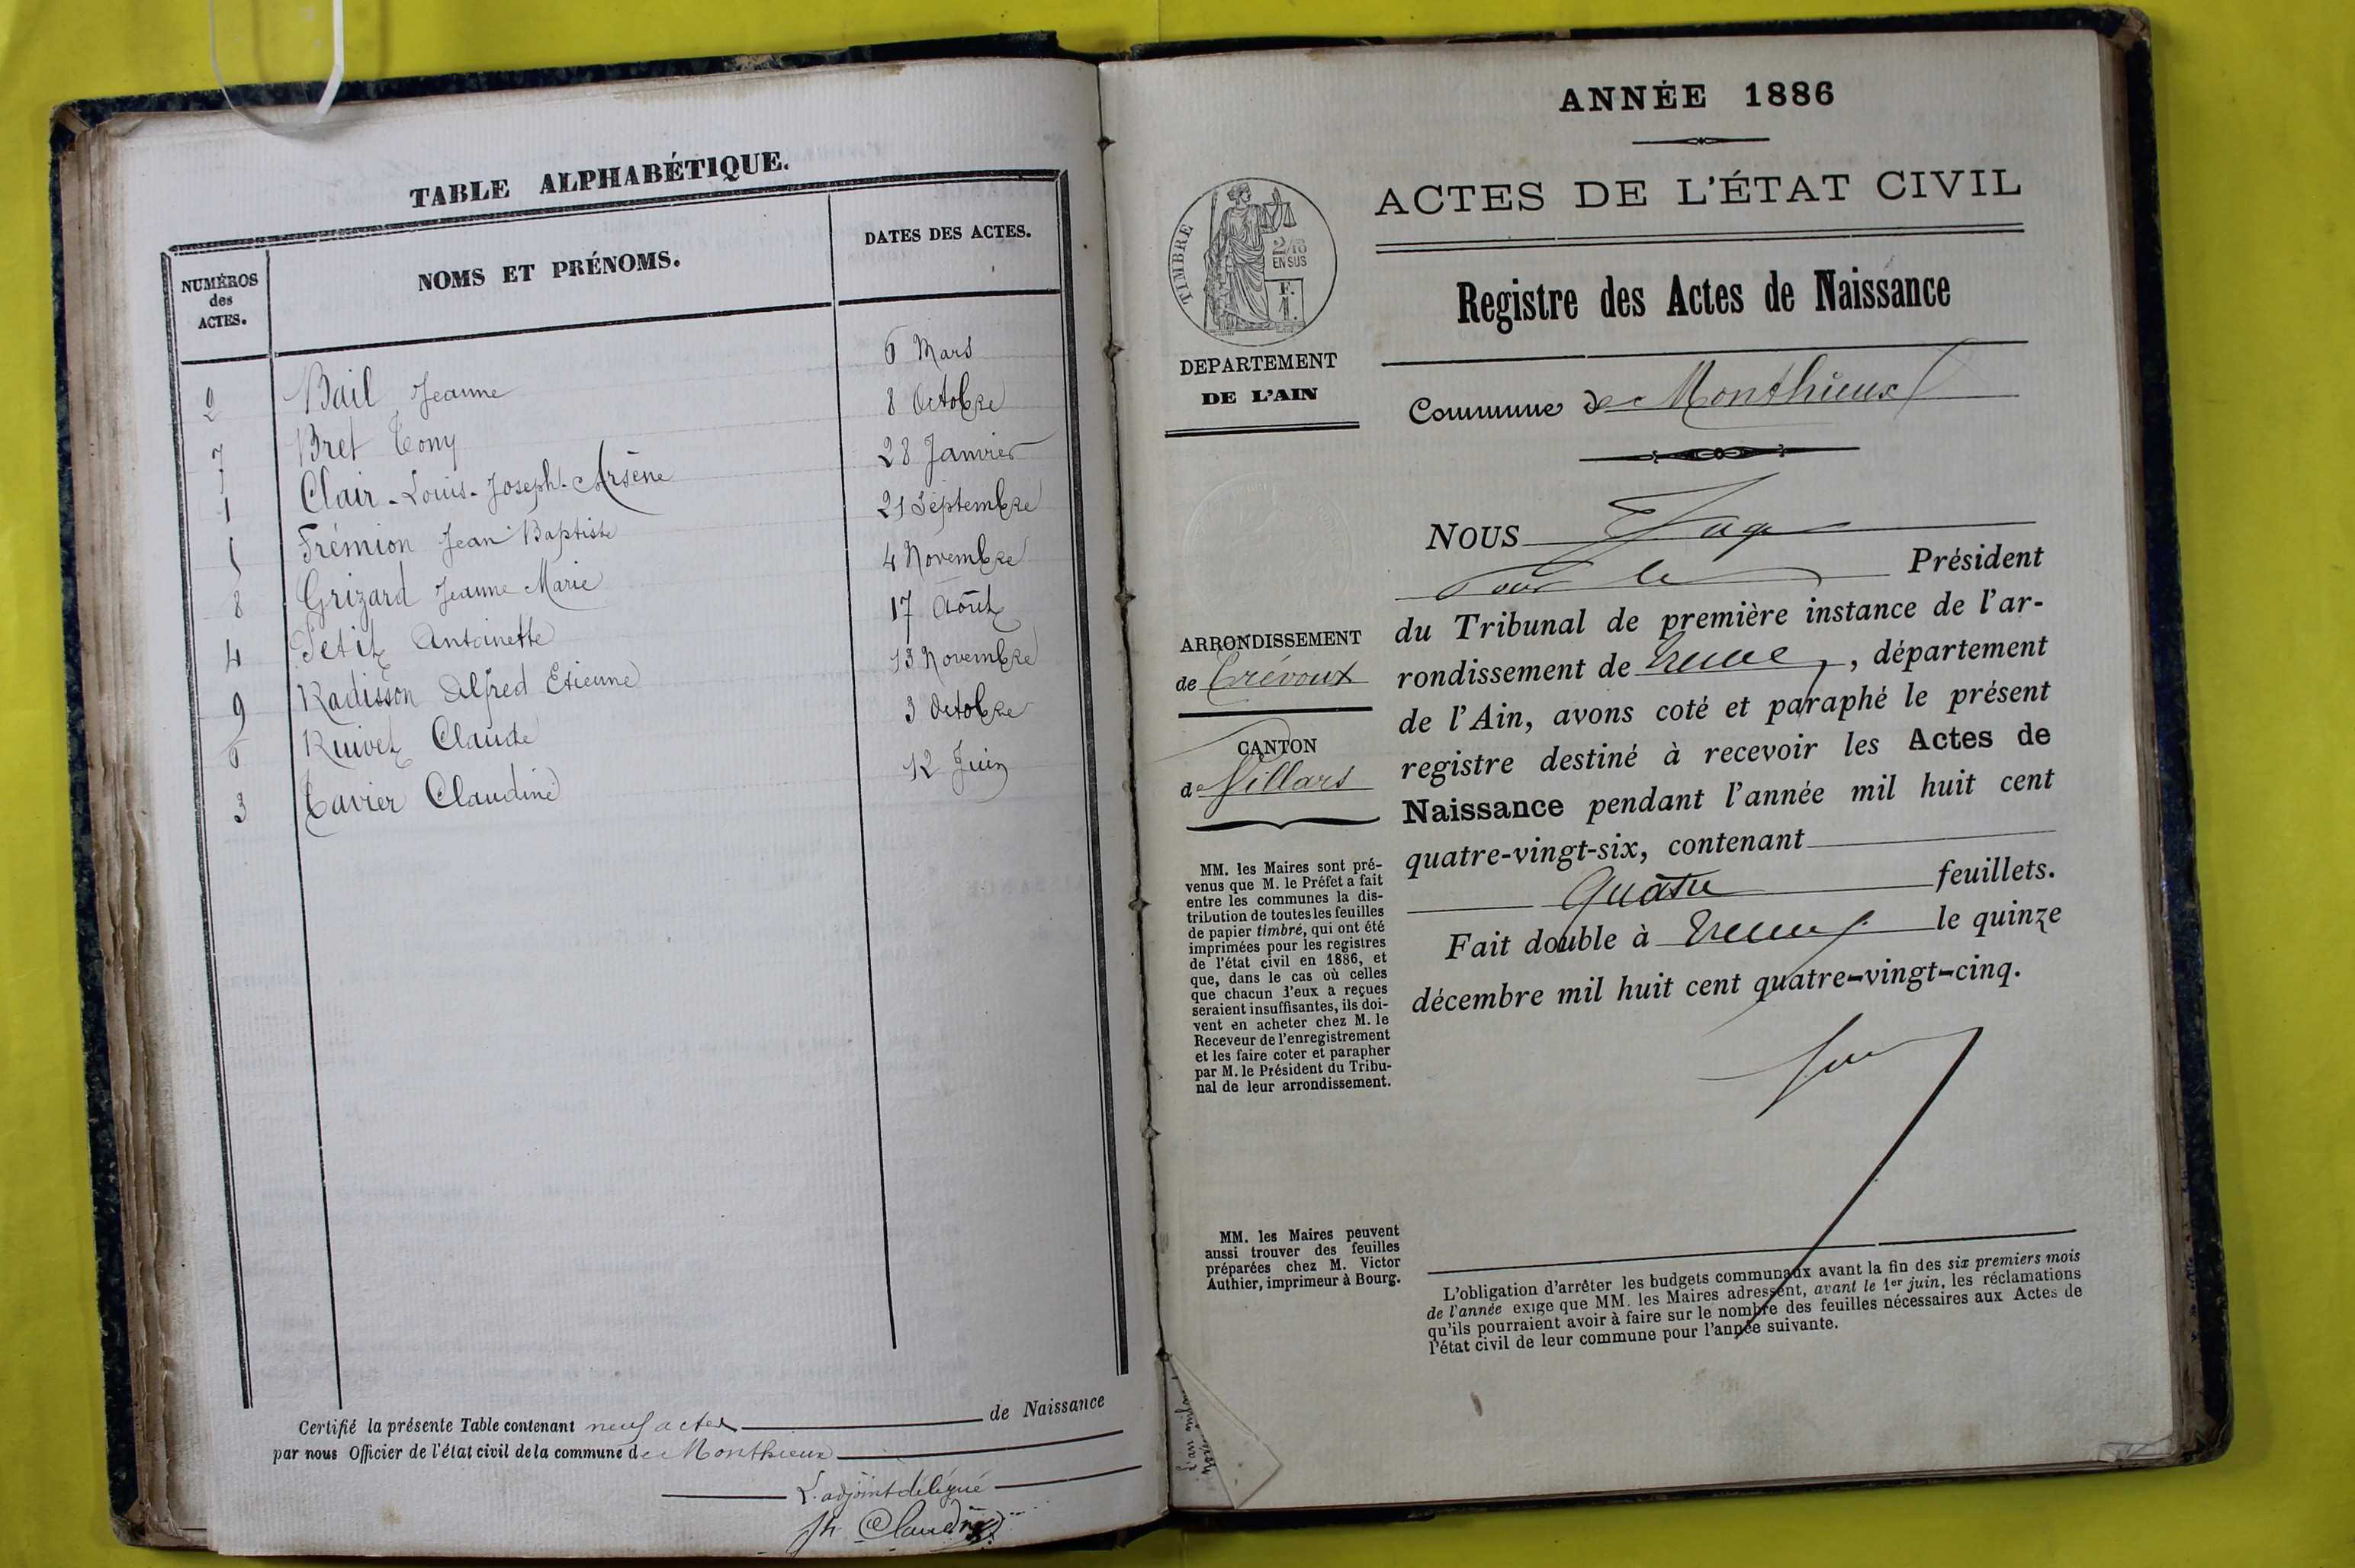 TABLE ALPHABÉTIQUE.
NUMÉROS des ACTES. NOMS ET PRÉNOMS. DATES DES ACTES.
2 Bail Jeanne 6 Mars
7 Bret Tony 8 Octobre
1 Clair-Louis-Joseph-Arsène 28 Janvier
5 Frémion Jean Baptiste 21 Septembre
8 Grizard Jeanne Marie 4 Novembre
4 Petit Antoinette 17 Août
9 Radisson Alfred Etienne 13 Novembre
6 Ruivet Claude 3 Octobre
3 Tavier Claudine 12 Juin
Certifié la présente Table contenant neuf actes de Naissance
par nous Officier de l'état civil de la commune de Monthieux
L'adjoint délégué
ANNÉE 1886
ACTES DE L'ÉTAT CIVIL
TIMBRE
2/10
EN SUS
F.
1.
DEPARTEMENT
DE L'AIN
Registre des Actes de Naissance
Commune de Monthieux
ARRONDISSEMENT
de Trévoux
CANTON
de Villars
MM. les Maires sont pré-
venus que M. le Préfet a fait
entre les communes la dis-
tribution de toutes les feuilles
de papier timbré, qui ont été
imprimées pour les registres
de l'état civil en 1886, et
que, dans le cas où celles
que chacun d'eux a reçues
seraient insuffisantes, ils doi-
vent en acheter chez M. le
Receveur de l'enregistrement
et les faire coter et parapher
par M. le Président du Tribu-
nal de leur arrondissement.
MM. les Maires peuvent
aussi trouver des feuilles
préparées chez M. Victor
Authier, imprimeur à Bourg.
NOUS
Pour le Président
du Tribunal de première instance de l'ar-
rondissement de Trévoux, département
de l'Ain, avons coté et paraphé le présent
registre destiné à recevoir les Actes de
Naissance pendant l'année mil huit cent
quatre-vingt-six, contenant
quatre feuillets.
Fait double à Trévoux le quinze
décembre mil huit cent quatre-vingt-cinq.
L'obligation d'arrêter les budgets communaux avant la fin des six premiers mois
de l'année exige que MM. les Maires adressent, avant le 1er juin, les réclamations
qu'ils pourraient avoir à faire sur le nombre des feuilles nécessaires aux Actes de
l'état civil de leur commune pour l'année suivante.